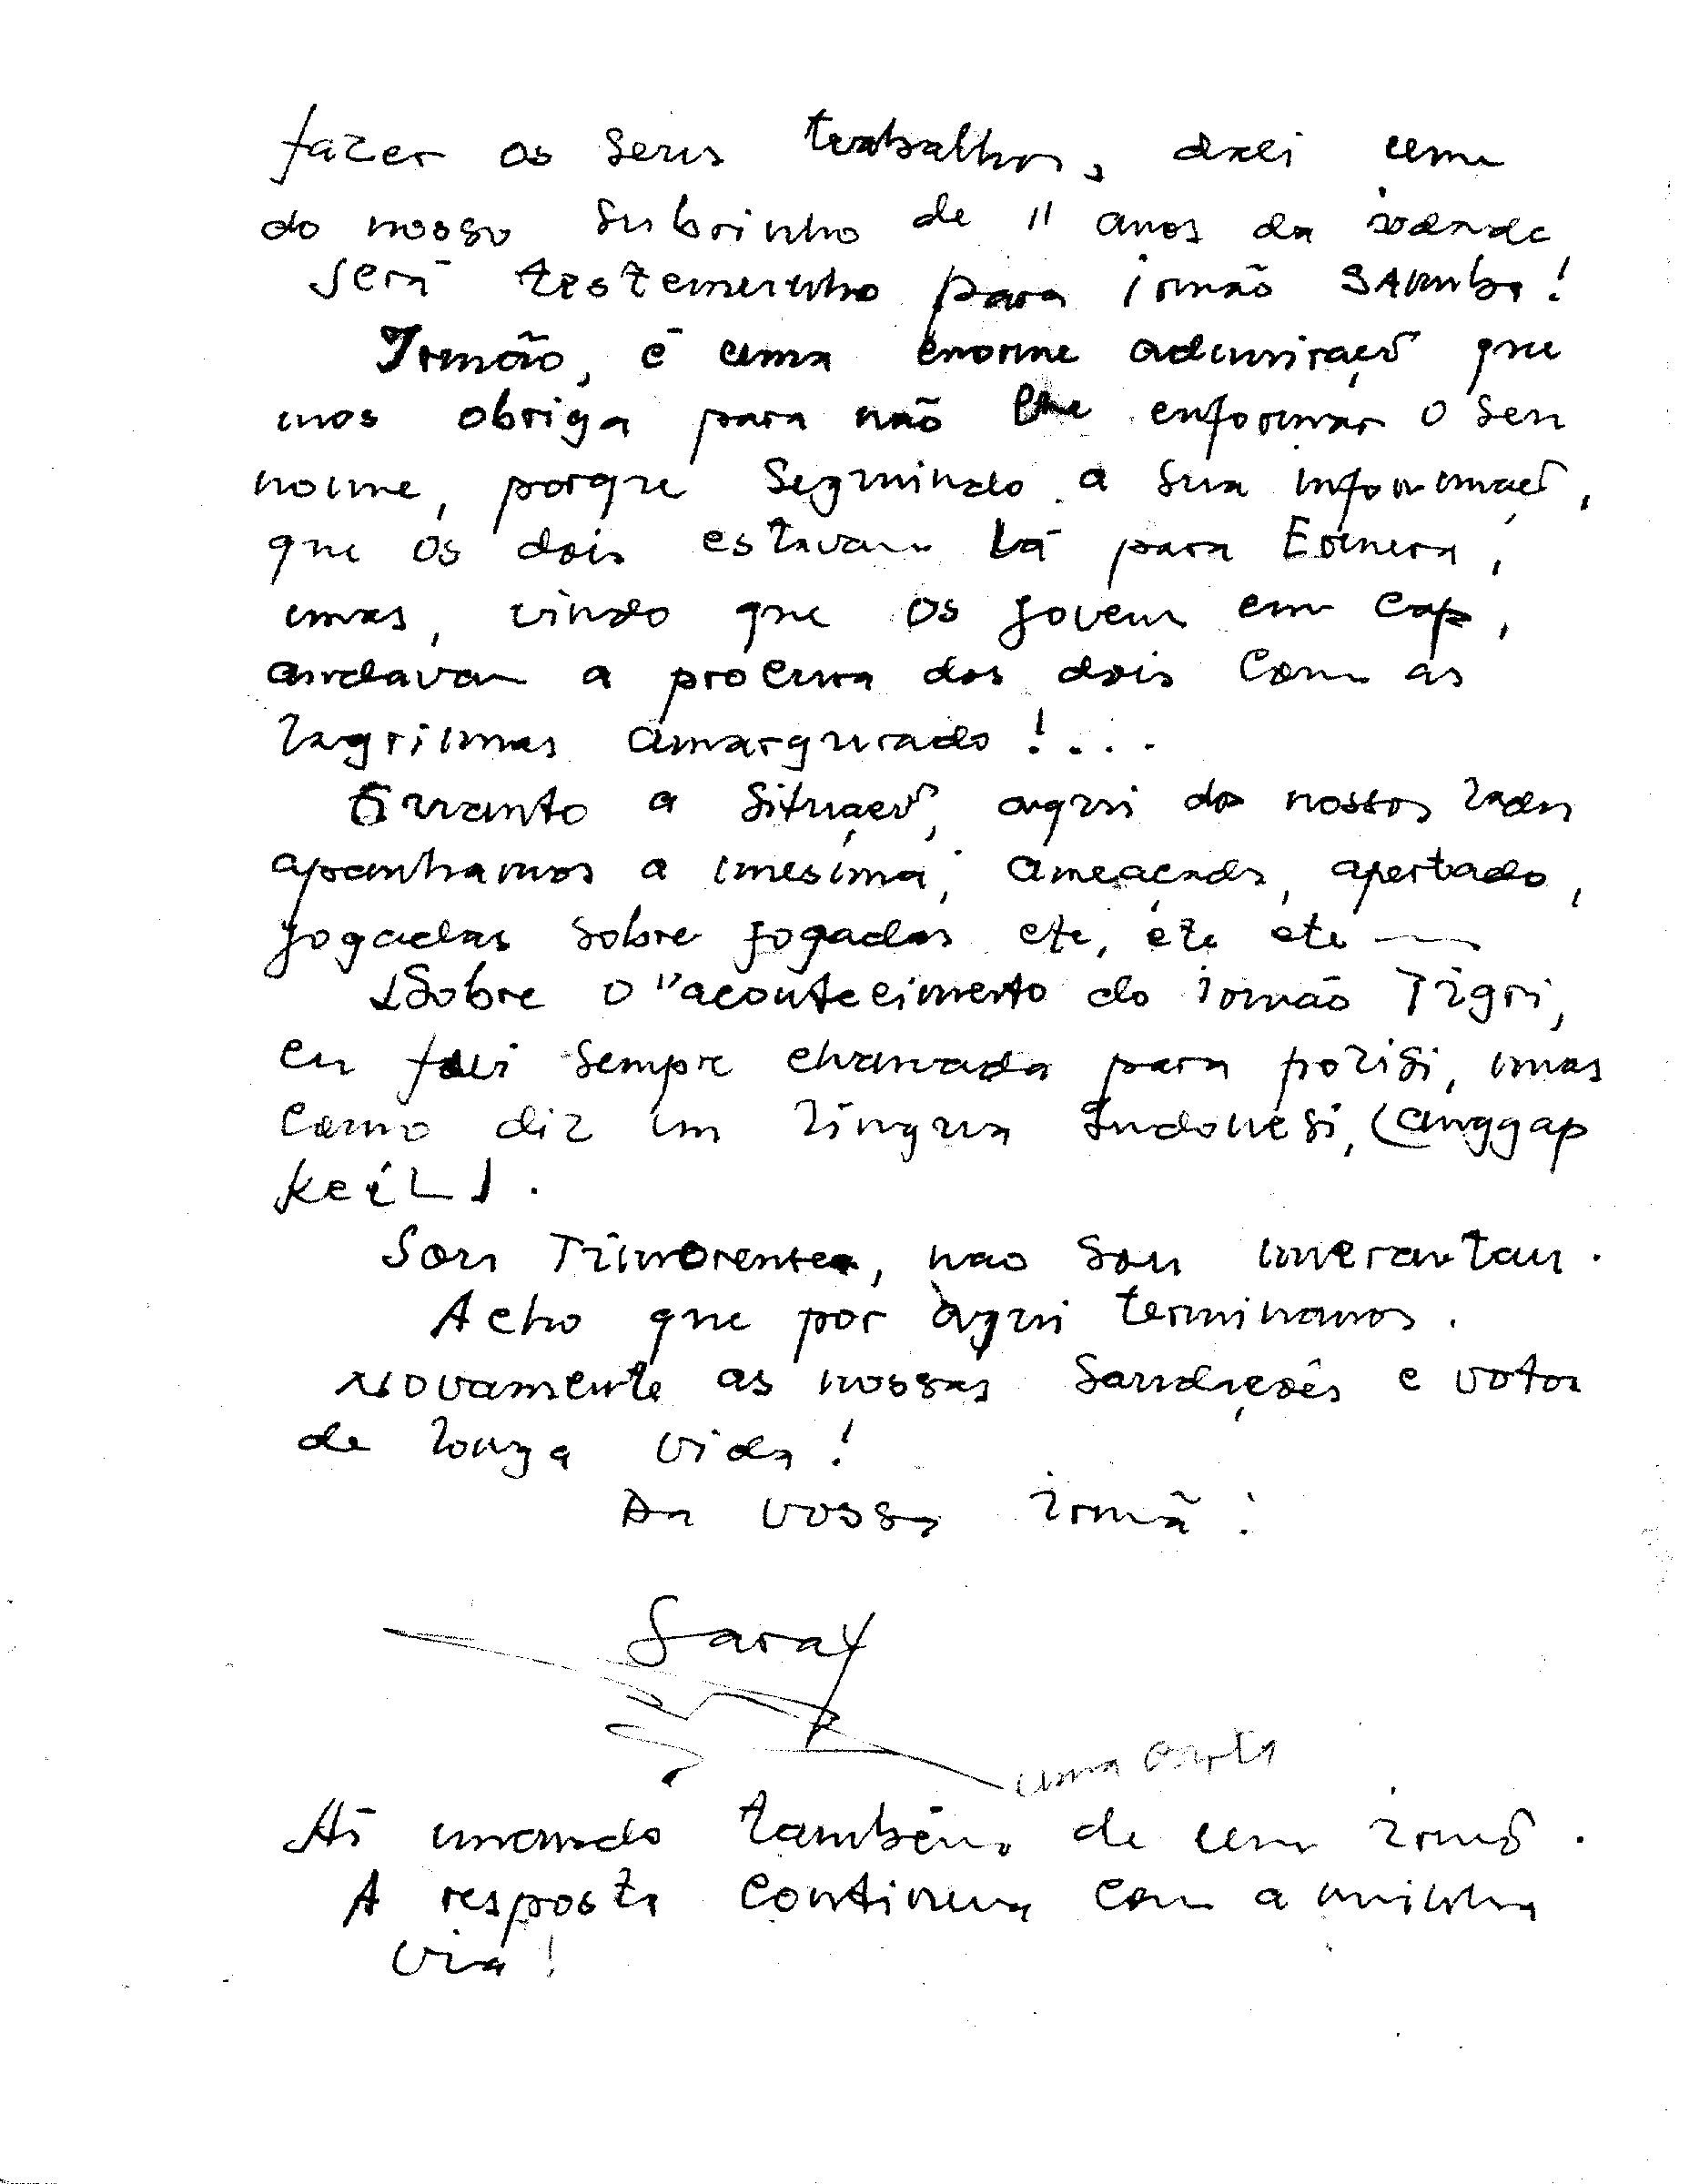 fazer os seus trabalhos, dali um
do nosso subrinho de 11 anos da idande
será testemunho para irmão Samba!
Irmão, é uma enorme admiraçaõ que
mos obriga para não lhe enformar o seu
nome, porque segmindo a sua informaçaõ,
que os dois estavam lá para Ermera,
mas, vindo que os jovem em cap,
andavam a procura dos dois com as
lagrimas amargurado!...
Quanto a situaçaõ, aqui do nossos lados
apanhamos a mesma, ameaçada, apertado,
jogadas sobre jogadas etc, etc etc
Sobre o "acontecimento do irmão Tigri,
eu fui sempre chamada para polisi, mas
como diz em lingua Indonesi, (anggap
keciL).
Sou Timorense, nao sou merantau.
Acho que por aqui terminamos.
Novamente as nossas saudaçoês e votos
de longa vida!
Da vossa irmã:
Saray
uma carta
Aí mando também de um irmõ.
A resposta continua com a minha
via!